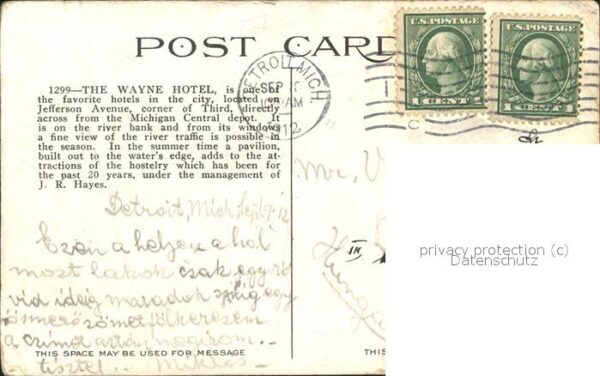 POST CARD
U.S. POSTAGE
1 CENT 1
U.S. POSTAGE
1 CENT 1
DETROIT, MICH.
SEP
PM
1912
1299—THE WAYNE HOTEL, is one of
the favorite hotels in the city, located on
Jefferson Avenue, corner of Third, directly
across from the Michigan Central depot. It
is on the river bank and from its windows
a fine view of the river traffic is possible in
the season. In the summer time a pavilion,
built out to the water's edge, adds to the at-
tractions of the hostelry which has been for
the past 20 years, under the management of
J. R. Hayes.
Detroit, Mich, Sept 9-12
Ezen a helyen a hol
most lakok csak egy rö
vid ideig maradok míg egy
ösmerősömet fölkeresem
a czímet aztán megirom..
tisztel.. Miklós
Mr. V
Hunga
THIS SPACE MAY BE USED FOR MESSAGE
THIS
privacy protection (c)
Datenschutz